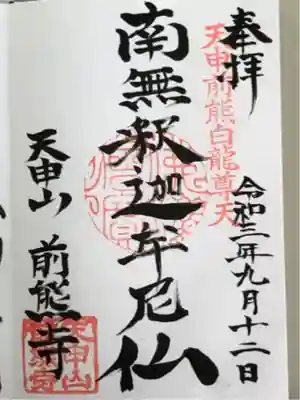 奉拝
天申前熊白龍尊天
令和三年九月十二日
南無釈迦牟尼仏
天申山 前熊寺